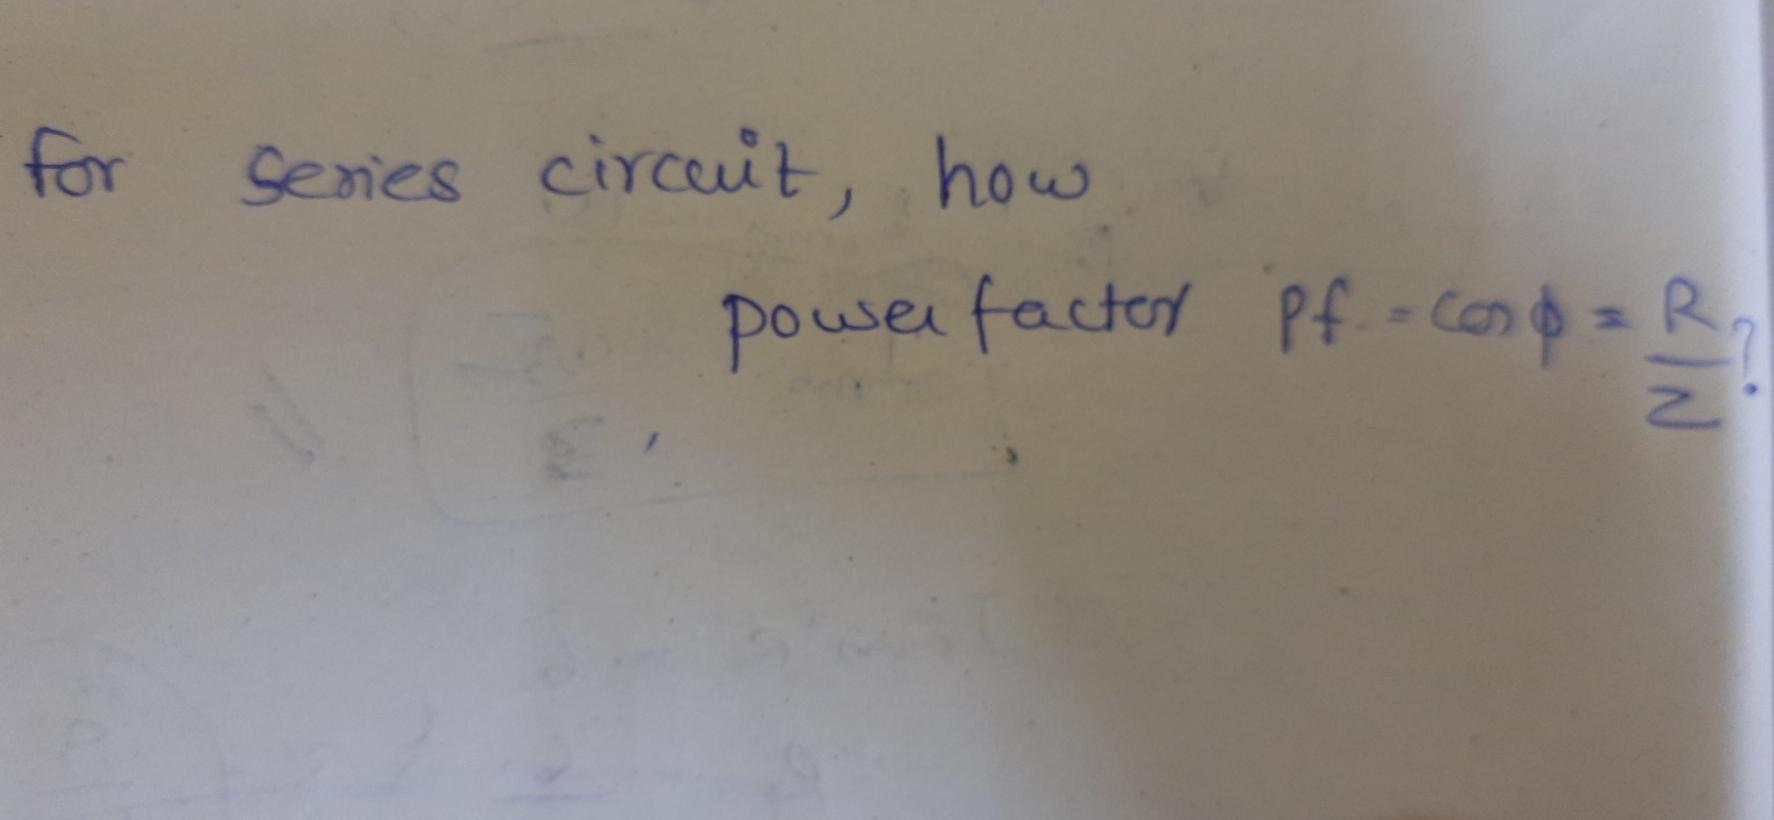 for series circuit, how
power factor Pf. = cos ϕ = R/Z?